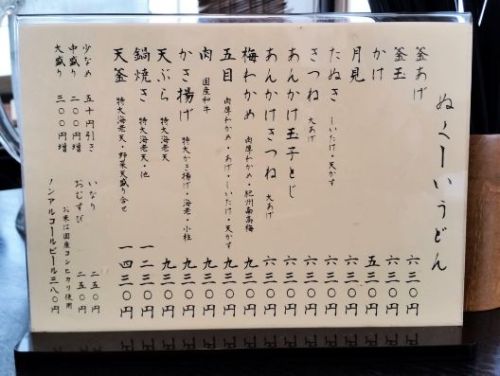 ぬくーいうどん
釜あげ 六三〇円
釜玉 六三〇円
かけ 五三〇円
月見 六三〇円
たぬき しいたけ・天かす 六三〇円
きつね 大あげ 六三〇円
あんかけ玉子とじ 六三〇円
あんかけきつね 大あげ 六三〇円
梅わかめ 肉厚わかめ・紀州南高梅 九三〇円
五目 肉厚わかめ・あげ・しいたけ・天かす 九三〇円
肉 国産和牛 九三〇円
かき揚げ 特大かき揚げ・海老・小柱 九三〇円
天ぷら 特大海老天 九三〇円
鍋焼き 特大海老天・他 一二三〇円
天釜 特大海老天・野菜天盛り合せ 一四三〇円
少なめ 五十円引き
中盛り 二〇〇円増
大盛り 三〇〇円増
いなり 二五〇円
おむすび 二五〇円
お米は国産コシヒカリ使用
ノンアルコールビール三八〇円